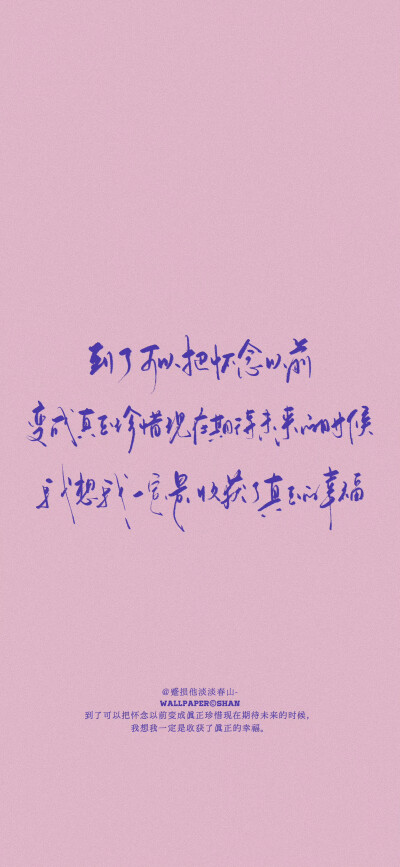 到了可以把怀念以前
变成真正珍惜现在期待未来的时候
我想我一定是收获了真正的幸福
@蹙损他淡淡春山-
WALLPAPER©SHAN
到了可以把怀念以前变成眞正珍惜现在期待未来的时候，
我想我一定是收获了眞正的幸福。